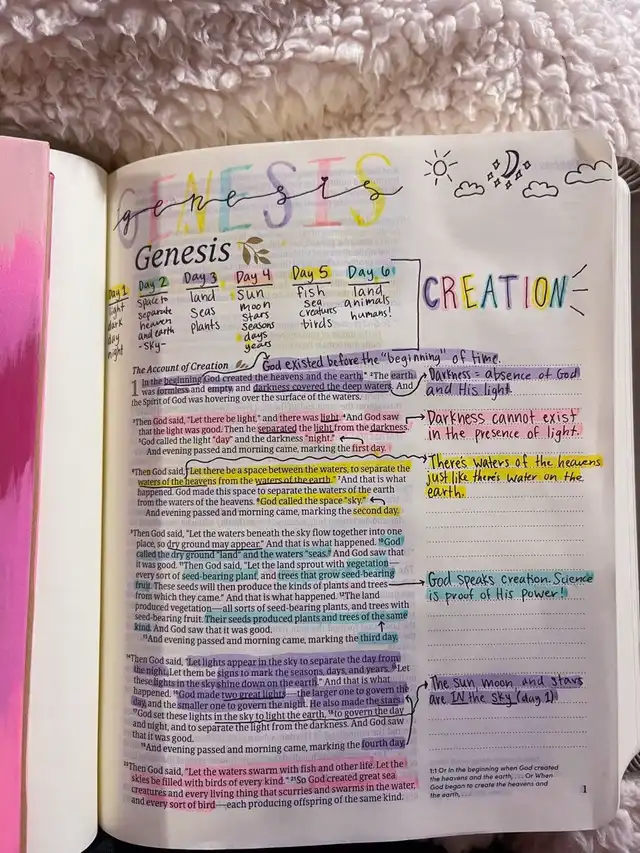 GENESIS
genesis
Genesis
Day 1
light
dark
day
night
Day 2
space to
separate
heaven
and earth
-sky-
Day 3
land
seas
plants
Day 4
sun
moon
stars
seasons
days
years
Day 5
fish
sea
creatures
birds
Day 6
land
animals
humans!
CREATION
God existed before the "beginning" of time.
The Account of Creation
1 In the beginning God created the heavens and the earth. 2The earth
was formless and empty, and darkness covered the deep waters. And
the Spirit of God was hovering over the surface of the waters.
Darkness = absence of God
and His light
3Then God said, "Let there be light," and there was light. 4And God saw
that the light was good. Then he separated the light from the darkness.
5God called the light "day" and the darkness "night."
And evening passed and morning came, marking the first day.
Darkness cannot exist
in the presence of light.
6Then God said, "Let there be a space between the waters, to separate the
waters of the heavens from the waters of the earth." 7And that is what
happened. God made this space to separate the waters of the earth
from the waters of the heavens. 8God called the space "sky."
And evening passed and morning came, marking the second day.
There's waters of the heavens
just like there's water on the
earth.
9Then God said, "Let the waters beneath the sky flow together into one
place, so dry ground may appear." And that is what happened. 10God
called the dry ground "land" and the waters "seas." And God saw that
it was good. 11Then God said, "Let the land sprout with vegetation—
every sort of seed-bearing plant, and trees that grow seed-bearing
fruit. These seeds will then produce the kinds of plants and trees
from which they came." And that is what happened. 12The land
produced vegetation—all sorts of seed-bearing plants, and trees with
seed-bearing fruit. Their seeds produced plants and trees of the same
kind. And God saw that it was good.
13And evening passed and morning came, marking the third day.
God speaks creation. Science
is proof of His power!
14Then God said, "Let lights appear in the sky to separate the day from
the night. Let them be signs to mark the seasons, days, and years. 15Let
these lights in the sky shine down on the earth." And that is what
happened. 16God made two great lights—the larger one to govern the
day, and the smaller one to govern the night. He also made the stars.
17God set these lights in the sky to light the earth, 18to govern the day
and night, and to separate the light from the darkness. And God saw
that it was good.
19And evening passed and morning came, marking the fourth day.
The sun, moon and stars
are IN the sky (day 1)
20Then God said, "Let the waters swarm with fish and other life. Let the
skies be filled with birds of every kind." 21So God created great sea
creatures and every living thing that scurries and swarms in the water,
and every sort of bird—each producing offspring of the same kind.
1:1 Or In the beginning when God created
the heavens and the earth, . . . Or When
God began to create the heavens and
the earth, . . .
1